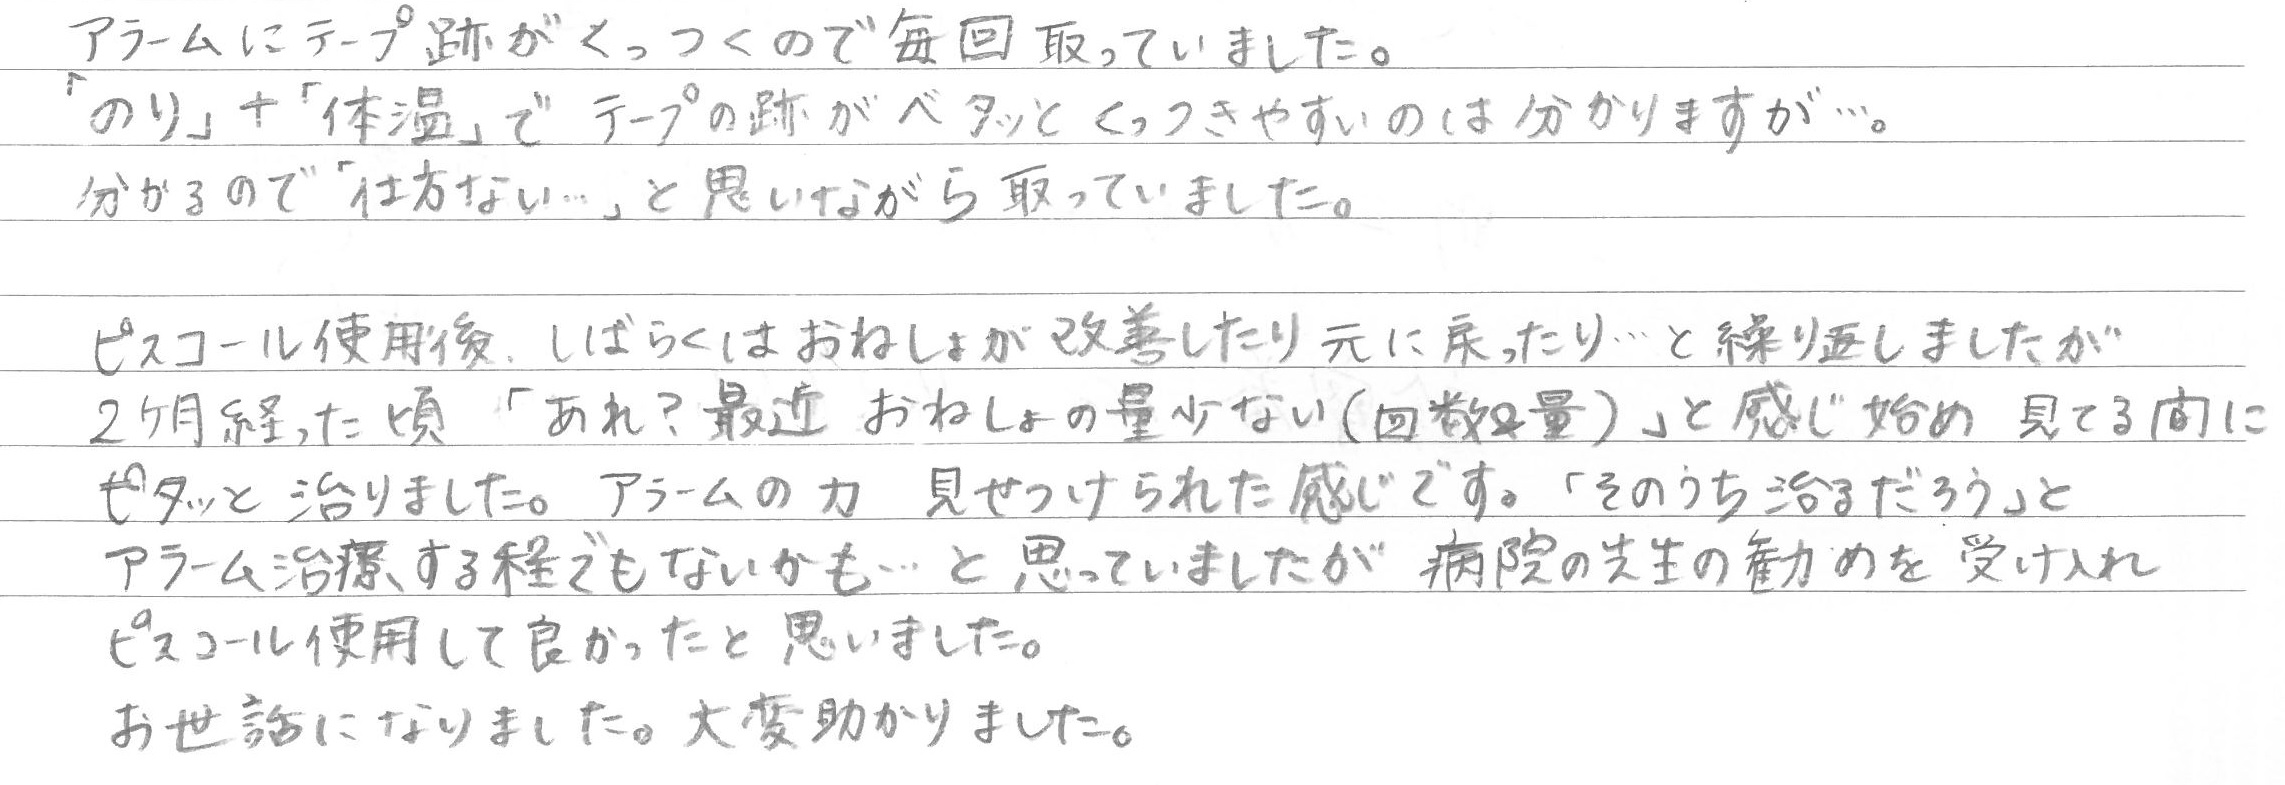 アラームにテープ跡がくっつくので毎回取っていました。
「のり」+「体温」でテープの跡がベタッとくっつきやすいのは分かりますが…。
分かるので「仕方ない…」と思いながら取っていました。
ピスコール使用後、しばらくはおねしょが改善したり元に戻ったり…と繰り返しましたが
2ヶ月経った頃「あれ?最近 おねしょの量少ない(回数&量)」と感じ始め 見てる間に
ピタッと治りました。アラームの力 見せつけられた感じです。「そのうち治るだろう」と
アラーム治療する程でもないかも…と思っていましたが 病院の先生の勧めを受け入れ
ピスコール使用して良かったと思いました。
お世話になりました。大変助かりました。